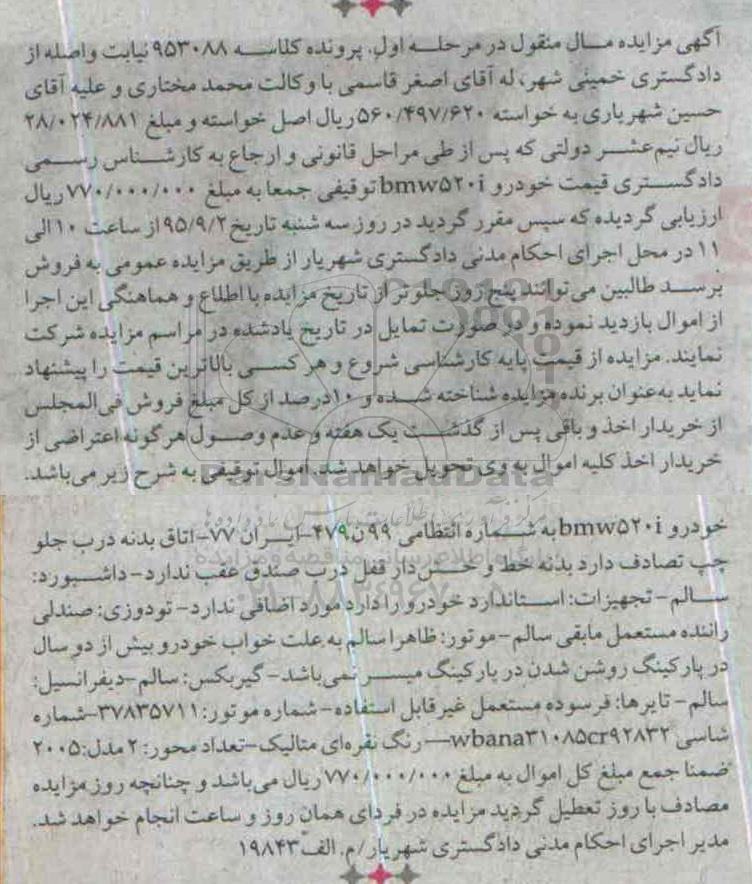 آگهی مزایده مال منقول در مرحله اول. پرونده کلاسه ۹۵۳۰۸۸ نیابت واصله از
دادگستری خمینی شهر، له آقای اصغر قاسمی با وکالت محمد مختاری و علیه آقای
حسین شهریاری به خواسته ۵۶۰/۴۹۷/۶۲۰ ریال اصل خواسته و مبلغ ۲۸/۰۲۴/۸۸۱
ریال نیم‌عشر دولتی که پس از طی مراحل قانونی و ارجاع به کارشناس رسمی
دادگستری قیمت خودرو bmw۵۲۰i توقیفی جمعا به مبلغ ۷۷۰/۰۰۰/۰۰۰ ریال
ارزیابی گردیده که سپس مقرر گردید در روز سه شنبه تاریخ ۹۵/۹/۲ از ساعت ۱۰ الی
۱۱ در محل اجرای احکام مدنی دادگستری شهریار از طریق مزایده عمومی به فروش
برسد طالبین می‌توانند پنج روز جلوتر از تاریخ مزایده با اطلاع و هماهنگی این اجرا
از اموال بازدید نموده و در صورت تمایل در تاریخ یادشده در مراسم مزایده شرکت
نمایند. مزایده از قیمت پایه کارشناسی شروع و هر کسی بالاترین قیمت را پیشنهاد
نماید به‌عنوان برنده مزایده شناخته شده و ۱۰درصد از کل مبلغ فروش فی‌المجلس
از خریدار اخذ و باقی پس از گذشت یک هفته و عدم وصول هرگونه اعتراضی از
خریدار اخذ کلیه اموال به وی تحویل خواهد شد. اموال توقیفی به شرح زیر می‌باشد.
ParsNamadData
خودرو bmw۵۲۰i به شماره انتظامی ۹۹ن۴۷۹-ایران ۷۷-اتاق بدنه درب جلو
چپ تصادف دارد بدنه خط و خش دار قفل درب صندق عقب ندارد-داشبورد:
سالم-تجهیزات: استاندارد خودرو را دارد مورد اضافی ندارد-تودوزی: صندلی
راننده مستعمل مابقی سالم-موتور: ظاهرا سالم به علت خواب خودرو بیش از دو سال
در پارکینگ روشن شدن در پارکینگ میسر نمی‌باشد-گیربکس: سالم-دیفرانسیل:
سالم-تایرها: فرسوده مستعمل غیرقابل استفاده-شماره موتور: ۳۷۸۳۵۷۱۱-شماره
شاسی wbana۳۱۰۸۵cr۹۲۸۳۲—رنگ نقره‌ای متالیک-تعداد محور: ۲ مدل: ۲۰۰۵
ضمنا جمع مبلغ کل اموال به مبلغ ۷۷۰/۰۰۰/۰۰۰ ریال می‌باشد و چنانچه روز مزایده
مصادف با روز تعطیل گردید مزایده در فردای همان روز و ساعت انجام خواهد شد.
مدیر اجرای احکام مدنی دادگستری شهریار/م. الف ۱۹۸۴۳